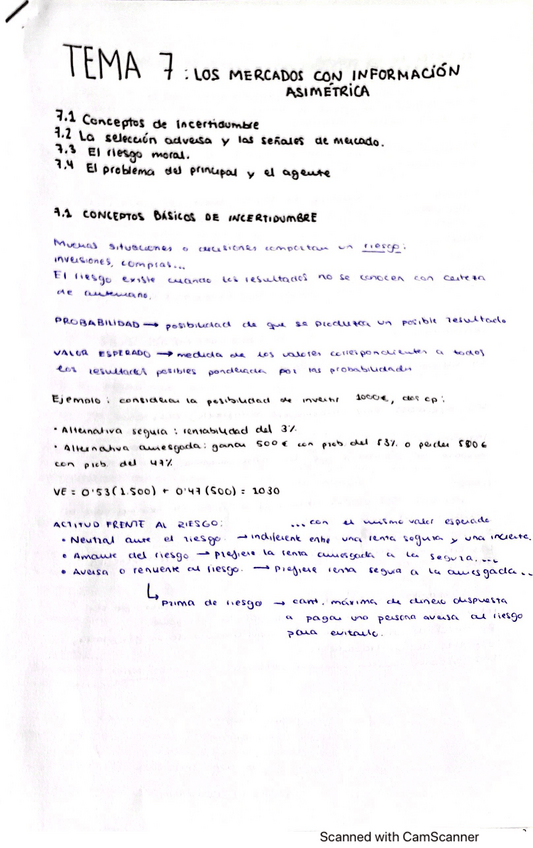 TEMA 7: LOS MERCADOS CON INFORMACIÓN
ASIMÉTRICA
7.1 Conceptos de Incertidumbre
7.2 La selección adversa y las señales de mercado.
7.3 El riesgo moral.
7.4 El problema del principal y el agente
7.1 CONCEPTOS BÁSICOS DE INCERTIDUMBRE
Muchas situaciones o decisiones comportan un riesgo:
inversiones, compras...
El riesgo existe cuando los resultados no se conocen con certeza
de antemano.
PROBABILIDAD → posibilidad de que se produzca un posible resultado
VALOR ESPERADO → medida de los valores correspondientes a todos
los resultados posibles ponderada por las probabilidades
Ejemplo: considerar la posibilidad de invertir 1000€, dos op:
• Alternativa segura: rentabilidad del 3%
• Alternativa arriesgada: ganar 500€ con prob. del 53% o perder 500€
con prob. del 47%
VE = 0'53(1.500) + 0'47(500) = 1030
ACTITUD FRENTE AL RIESGO: ...con el mismo valor esperado
• Neutral ante el riesgo. → indiferente entre una renta segura y una incierta.
• Amante del riesgo → prefiere la renta arriesgada a la segura....
• Aversa o renuente al riesgo. → prefiere renta segura a la arriesgada...
↳ Prima de riesgo → cant. máxima de dinero dispuesta
a pagar una persona aversa al riesgo
para evitarlo.
Scanned with CamScanner